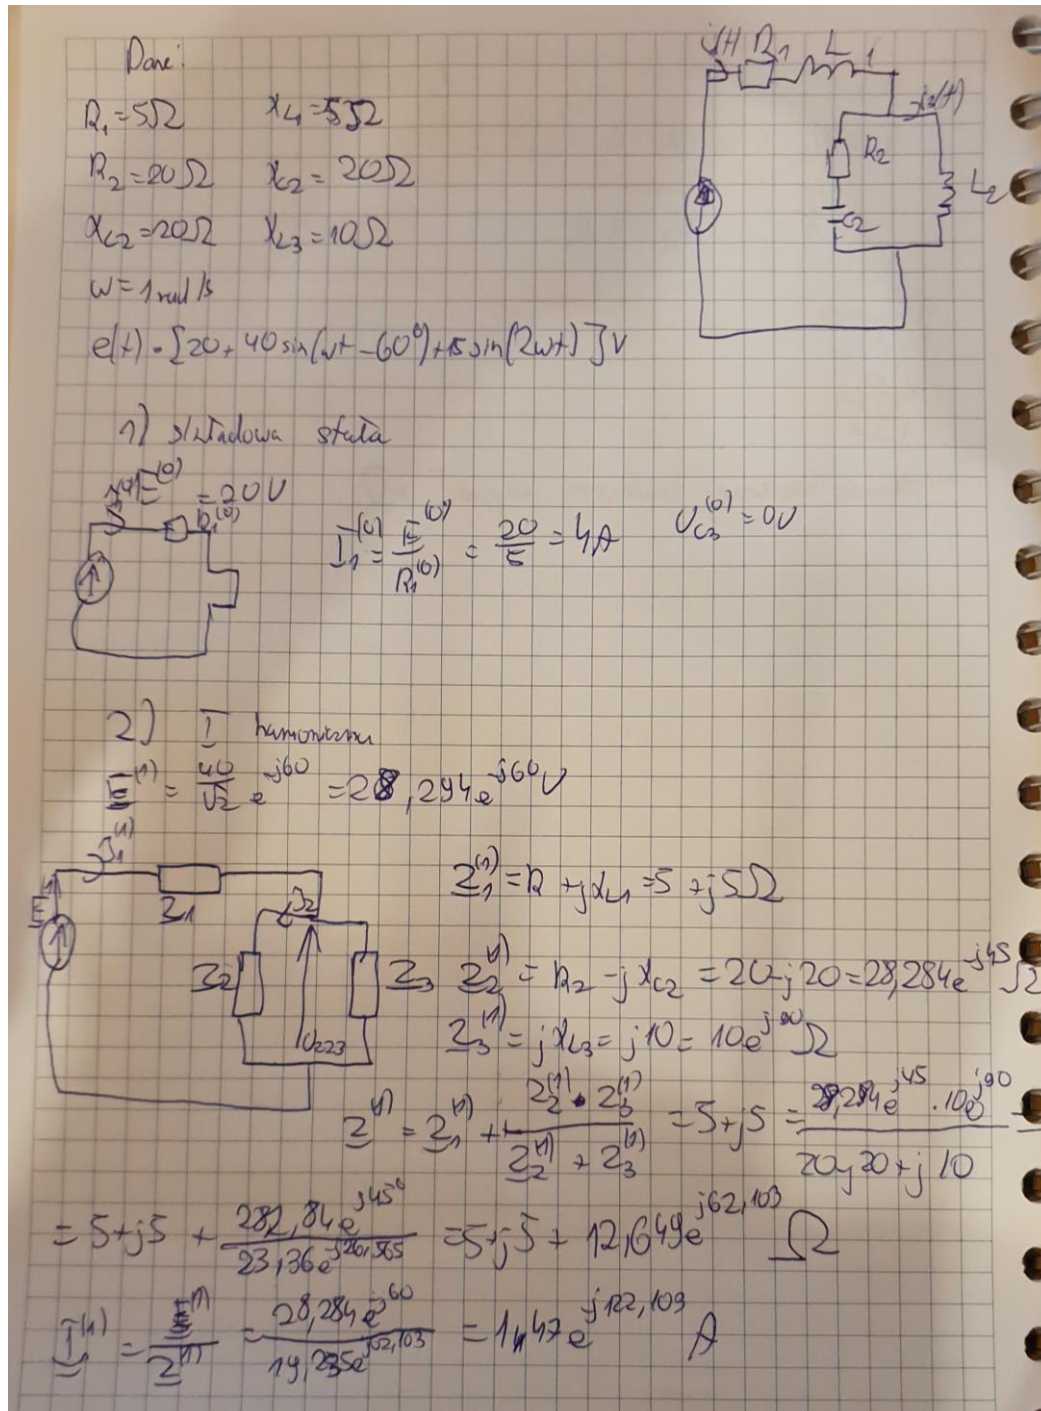 Dane:
R₁=5Ω X_L1=5Ω
R₂=20Ω X_C2=20Ω
X_C2=20Ω X_L3=10Ω
ω=1 rad/s
e(t)=[20+40sin(ωt-60°)+15sin(2ωt)]V
R₁ L 1
R₂
C2
L2
1) składowa stała
E⁽⁰⁾=20V
R₁⁽⁰⁾
I₁⁽⁰⁾=E⁽⁰⁾/R₁⁽⁰⁾=20/5=4A U_C3⁽⁰⁾=0V
2) I harmoniczna
E⁽¹⁾=40/√2 e^-j60=28,294e^-j60V
I₁⁽¹⁾
E
Z1
J2
Z2
Z3
U_Z23
Z₁⁽¹⁾=R+jX_L1=5+j5Ω
Z₂⁽¹⁾=R₂-jX_C2=20-j20=28,284e^-j45Ω
Z₃⁽¹⁾=jX_L3=j10=10e^j90Ω
Z⁽¹⁾=Z₁⁽¹⁾+Z₂⁽¹⁾·Z₃⁽¹⁾/Z₂⁽¹⁾+Z₃⁽¹⁾=5+j5=28,284e^j45·10e^j90/20-j20+j10=
=5+j5+282,84e^j45°/23,36e^-j26,565=5+j5+12,649e^j62,103 Ω
I⁽¹⁾=E⁽¹⁾/Z⁽¹⁾=28,284e^-j60/19,235e^j62,103=1,47e^-j122,103 A